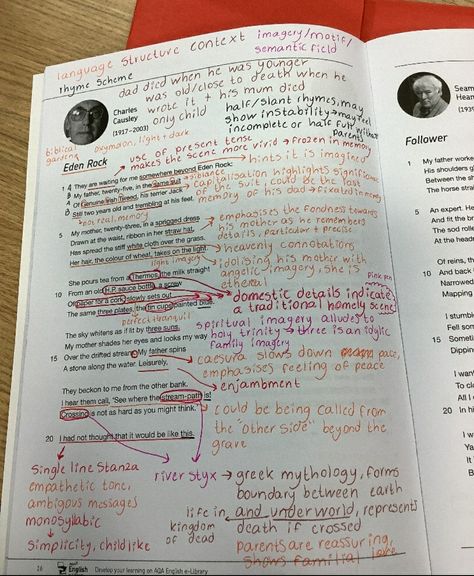 language structure context imagery/motif/
semantic field
rhyme scheme
dad died when he was younger
was old/close to death when he
wrote it + his mum died
only child
half/slant rhymes, may
show instability → may feel
incomplete or half full without
parents
Charles
Causley
(1917–2003)
biblical
garden
oxymoron, light + dark
use of present tense
makes the scene more vivid → frozen in memory
Eden Rock
hints it is imagined
1 They are waiting for me somewhere beyond Eden Rock:
My father, twenty-five, in the same suit
sibilance
capitalisation highlights significance
Of Genuine Irish Tweed, his terrier Jack
of the suit, could be the last
memory of his dad → fixated in memory
Still two years old and trembling at his feet.
not real, memory
5 My mother, twenty-three, in a sprigged dress
Drawn at the waist, ribbon in her straw hat,
Has spread the stiff white cloth over the grass.
Her hair, the colour of wheat, takes on the light.
light imagery
emphasises the fondness towards
his mother as he remembers
details, particular + precise
heavenly connotations
idolising his mother with
angelic imagery, she is
ethereal
pink pen
She pours tea from a Thermos, the milk straight
10 From an old H.P. sauce bottle, a screw
Of paper for a cork; slowly sets out
The same three plates, the tin cups painted blue.
perfect tranquil
domestic details indicate
a traditional homely scene
The sky whitens as if lit by three suns.
My mother shades her eyes and looks my way
15 Over the drifted stream. My father spins
A stone along the water. Leisurely,
spiritual imagery alludes to
holy trinity → three is an idylic
family imagery
caesura slows down pace,
emphasises feeling of peace
enjambment
They beckon to me from the other bank.
I hear them call, 'See where the stream-path is!
Crossing is not as hard as you might think.'
could be being called from
the "other side" beyond the
grave
20 I had not thought that it would be like this.
single line stanza
empathetic tone,
ambigous messages
monosyllabic
simplicity, childlike
river styx → greek mythology, forms
boundary between earth
and underworld, represents
life in
kingdom
of dead
death if crossed
parents are reassuring,
shows familial love
26 English Develop your learning on AQA English e-Library
Seam
Hean
(1939
Follower
1 My father worke
His shoulders gl
Between the sh
The horse strain
5 An expert. He
And fit the
The sod rolle
At the headr
Of reins, th
10 And back
Narrowed
Mapping
I stumble
Fell som
15 Sometim
Dipping
I want
To clo
All I
In h
I w